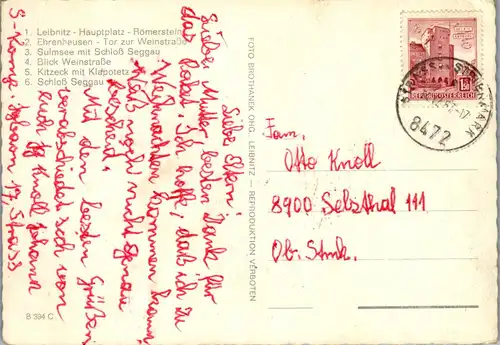 1. Leibnitz - Hauptplatz - Römerstein
2. Ehrenhausen - Tor zur Weinstraße
3. Sulmsee mit Schloß Seggau
4. Blick Weinstraße
5. Kitzeck mit Klapotetz
6. Schloß Seggau
Liebe Eltern!
Lieber Mutter, besten Dank für
das Paket. Ich hoffe, daß ich zu
Weihnachten kommen kann,
weiß noch nicht genau
Bescheid.
Mit den besten Grüßen
verabschiedet sich von
euch Johann
Knoll Johann
17, Strass
B 394 C
FOTO BROTHANEK OHG, LEIBNITZ — REPRODUKTION VERBOTEN
REPUBLIK ÖSTERREICH
8472
Fam.
Otto Knoll
8900 Selzthal 111
Ob. Stmk.